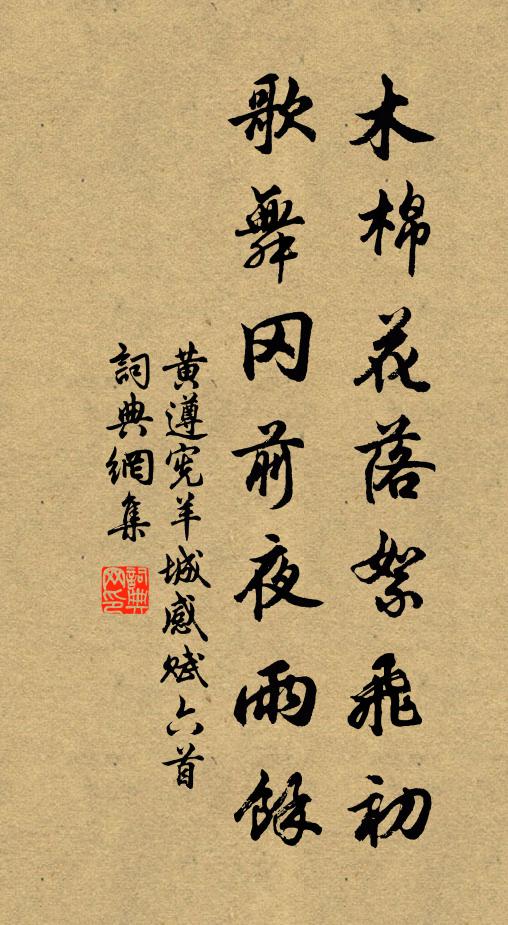 木棉花落絮飛初
歌舞冈前夜雨餘
黄遵宪羊城感赋六首
詞典網集
詞典网印